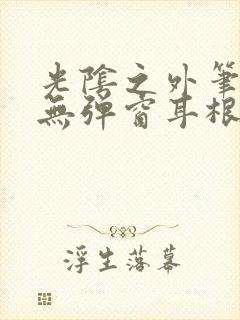 光陰之外筆
無彈窗耳根
浮生落幕